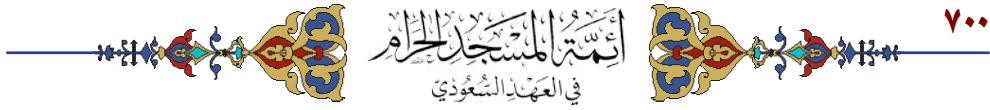 ٧٠٠
أَئِمَّةُ الْمَسْجِدِ الْحَرَامِ
فِي الْعَهْدِ السُّعُودِيِّ